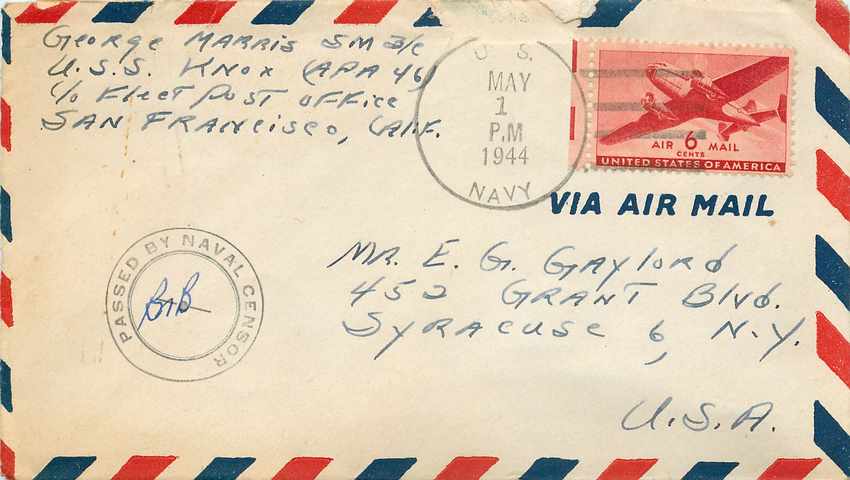 George Marris SM 3/c
U.S.S. Knox (APA 46)
c/o Fleet Post Office
San Francisco, Calif.
U. S.
MAY
1
P.M
1944
NAVY
AIR 6 MAIL
CENTS
UNITED STATES OF AMERICA
VIA AIR MAIL
PASSED BY NAVAL CENSOR
Mr. E. G. Gaylord
452 Grant Blvd.
Syracuse 6, N.Y.
U.S.A.